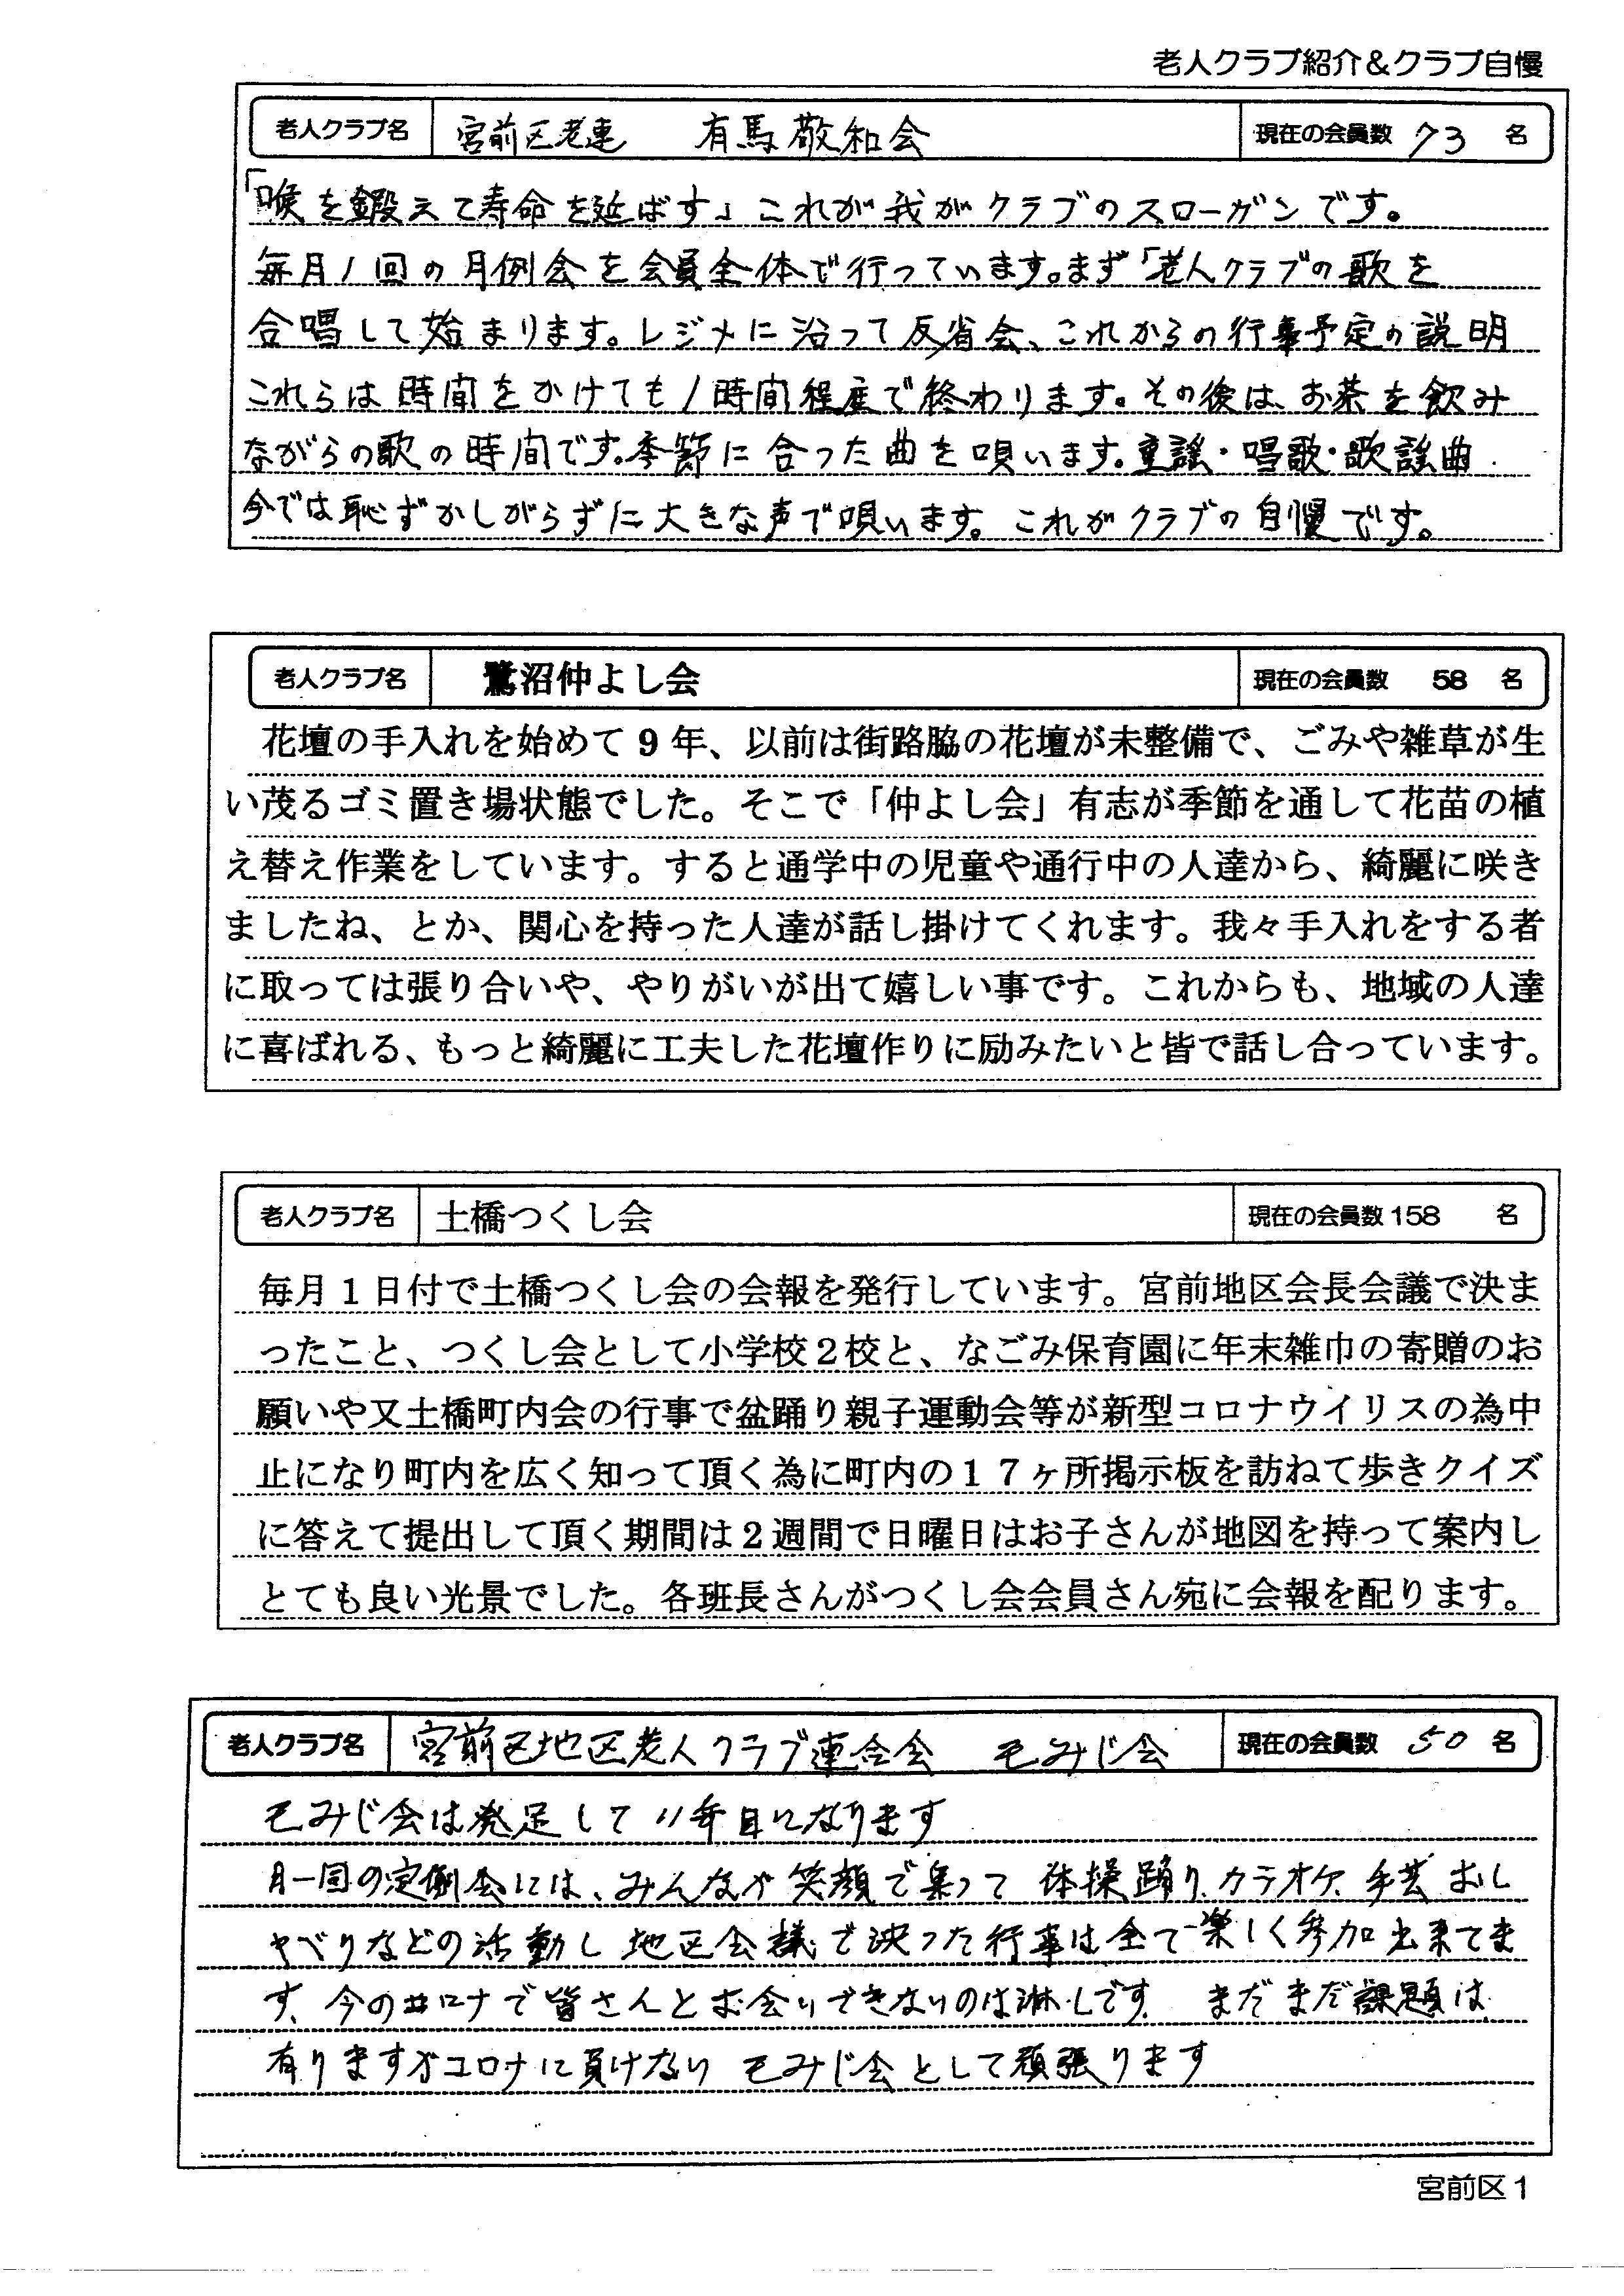 老人クラブ紹介＆クラブ自慢
老人クラブ名 宮前区老連 有馬敬和会 現在の会員数 73 名
「喉を鍛えて寿命を延ばす」これが我がクラブのスローガンです。
毎月1回の月例会を会員全体で行っています。まず「老人クラブの歌を
合唱して始まります。レジメに沿って反省会、これからの行事予定の説明
これらは時間をかけても1時間程度で終わります。その後は、お茶を飲み
ながらの歌の時間です。季節に合った曲を唄います。童謡・唱歌・歌謡曲
今では恥ずかしがらずに大きな声で唄います。これがクラブの自慢です。
老人クラブ名 鷺沼仲よし会 現在の会員数 58 名
花壇の手入れを始めて9年、以前は街路脇の花壇が未整備で、ごみや雑草が生
い茂るゴミ置き場状態でした。そこで「仲よし会」有志が季節を通して花苗の植
え替え作業をしています。すると通学中の児童や通行中の人達から、綺麗に咲き
ましたね、とか、関心を持った人達が話し掛けてくれます。我々手入れをする者
に取っては張り合いや、やりがいが出て嬉しい事です。これからも、地域の人達
に喜ばれる、もっと綺麗に工夫した花壇作りに励みたいと皆で話し合っています。
老人クラブ名 土橋つくし会 現在の会員数158 名
毎月1日付で土橋つくし会の会報を発行しています。宮前地区会長会議で決ま
ったこと、つくし会として小学校2校と、なごみ保育園に年末雑巾の寄贈のお
願いや又土橋町内会の行事で盆踊り親子運動会等が新型コロナウイリスの為中
止になり町内を広く知って頂く為に町内の17ヶ所掲示板を訪ねて歩きクイズ
に答えて提出して頂く期間は2週間で日曜日はお子さんが地図を持って案内し
とても良い光景でした。各班長さんがつくし会会員さん宛に会報を配ります。
老人クラブ名 宮前区地区老人クラブ連合会 もみじ会 現在の会員数 50 名
もみじ会は発足して11年目になります
月一回の定例会には、みんなが笑顔で集って 体操踊り、カラオケ、手芸 おし
ゃべりなどの活動し 地区会議で決った行事は全て楽しく参加出来てま
す、今のコロナで皆さんとお会いできないのは淋しです、まだまだ課題は
有りますがコロナに負けない もみじ会として頑張ります
宮前区1